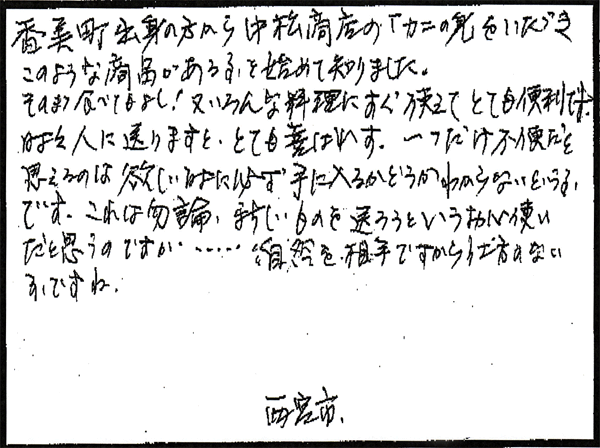 香美町出身の方から中松商店の「カニの身をいただき
このような商品がある事を始めて知りました。
そのまま食べてもよし！又いろんな料理にすぐ使えてとても便利です。
時々人に送りますと、とても喜ばれます。一つだけ不便だと
思えるのは欲しい時に必ず手に入るかどうかわからないという事
です。これは勿論、新しいものを送ろうというお心使い
だと思うのですが……自然を相手ですから仕方のない
事ですね。
西宮市.